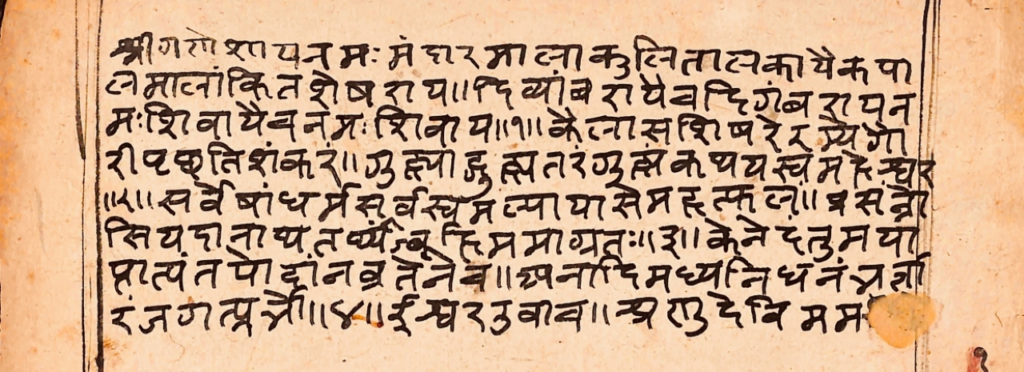 श्रीगणेशायनमः मंदारमालाकुलितालकायैकपा
लमालांकितशेषराय॥दिव्यांबरायैचदिगंबरायन
मःशिवायैचनमःशिवाय॥१॥कैलासशिषरेरम्येगौ
रीपृछतिशंकरं॥गुह्याद्गुह्यतरंगुह्यंकथयस्वमहेश्वर
॥२॥सर्वेषांधर्मसर्वस्वमल्पायासेमहत्फलं॥प्रसन्नो
सियदानाथतथ्यंब्रूहिममाग्रतः॥३॥केनेदंतुमया
प्राप्यंतपोदांनव्रतेनेव॥अनादिमध्यनिधनंभर्त्ता
रंजगत्प्रभौ॥४॥ईश्वरउवाच॥श्रृणुदेविमम
१